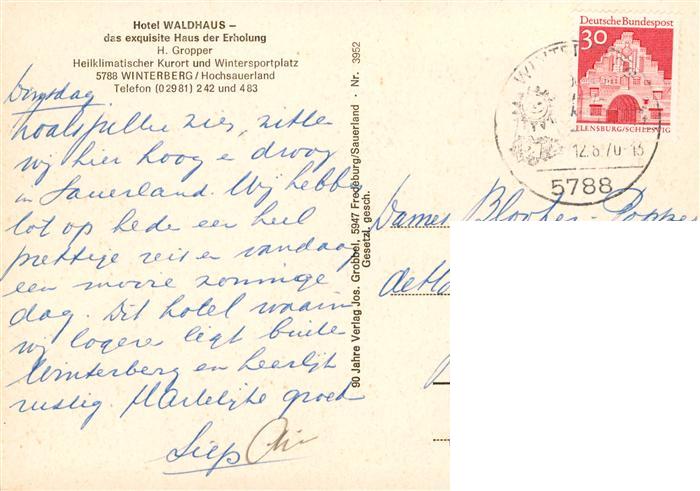 Hotel WALDHAUS –
das exquisite Haus der Erholung
H. Gropper
Heilklimatischer Kurort und Wintersportplatz
5788 WINTERBERG / Hochsauerland
Telefon (02981) 242 und 483
Dinsdag.
zoals jullie zien, zitten
wij hier hoog e droog
in Sauerland. Wij hebbe
tot op hede een heel
prettige reis en vandaag
een mooie zonnige
dag. Dit hotel waarin
wij logere ligt buite
Winterberg en heerlijk
rustig. Hartelijke groet
90 Jahre Verlag Jos. Grobbel, 5947 Fredeburg/Sauerland · Nr. 3952
Gesetzl. gesch.
Deutsche Bundespost
30
FLENSBURG/SCHLESWIG
12.8.70-13
5788
Dames